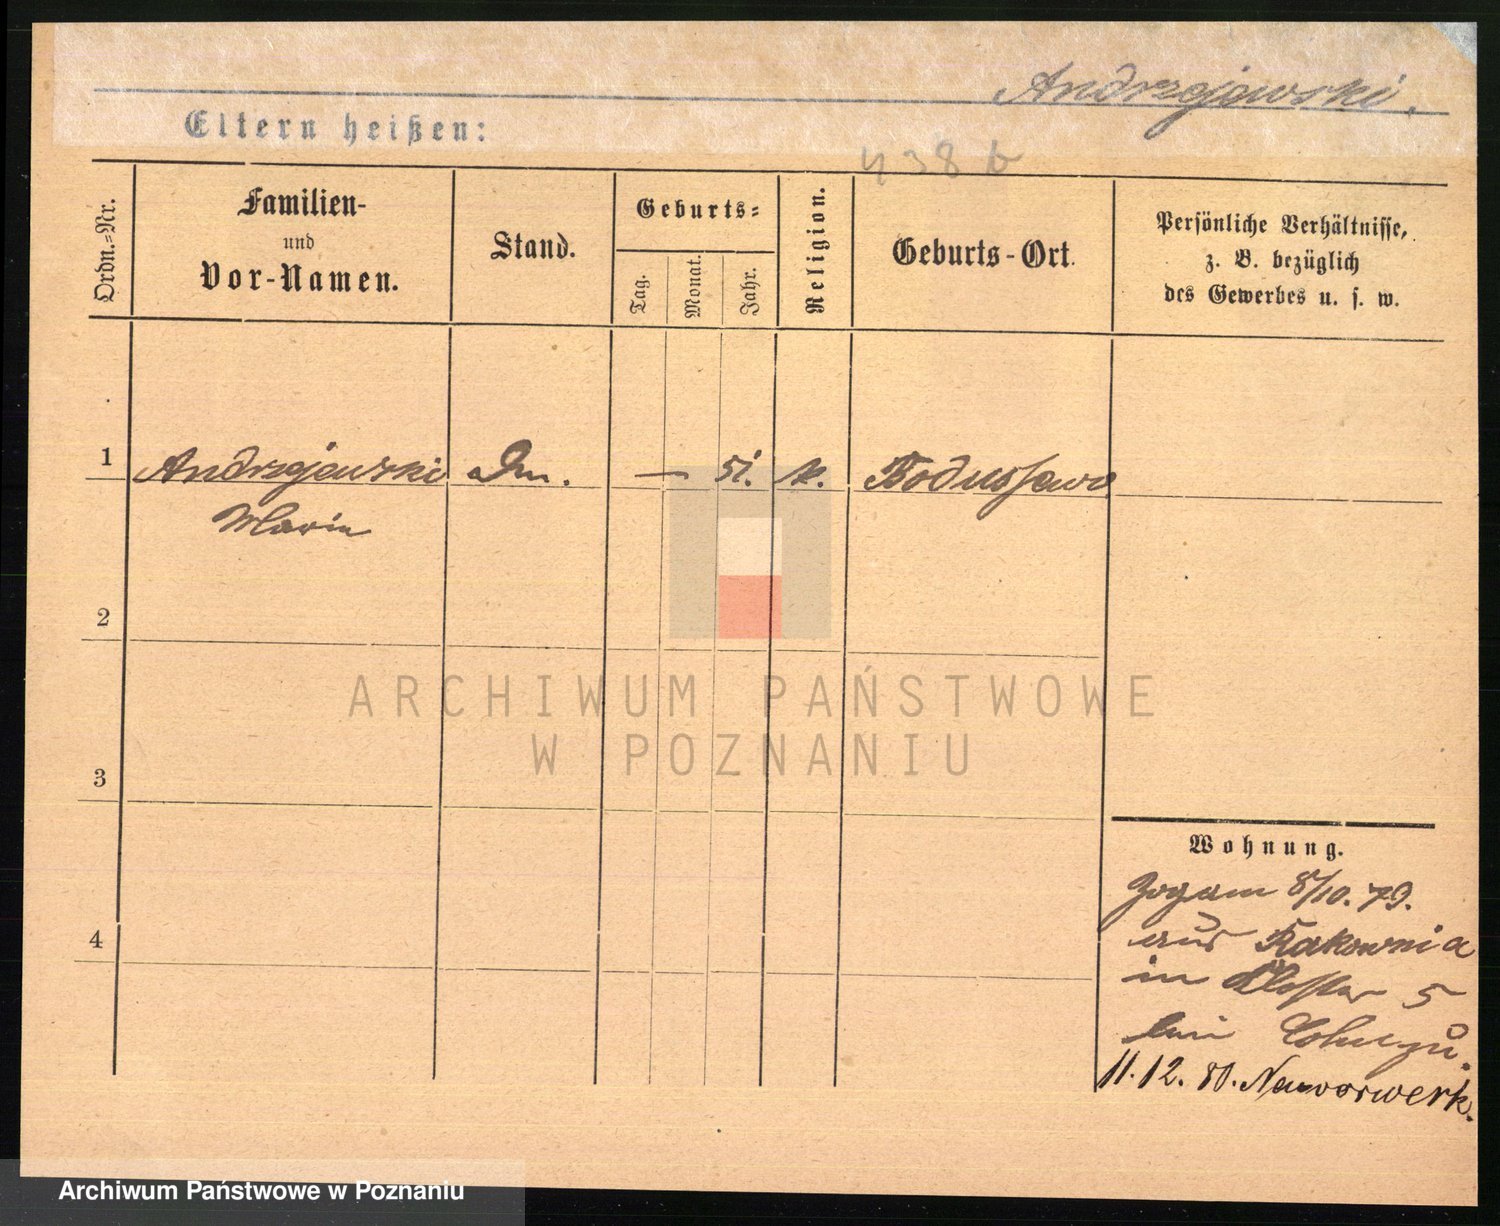 Andrzejewski.
Eltern heißen:
438 b
Ordn.=Nr.
Familien-
und
Vor-Namen.
Stand.
Geburts=
Tag.
Monat.
Jahr.
Religion.
Geburts-Ort.
Persönliche Verhältnisse,
z. B. bezüglich
des Gewerbes u. s. w.
1 Andrzejewski — 51. k.
Marie
2
3
4
Wohnung.
Zog am 8/10. 79.
aus Rakownia
in Kloster 5
bei Cohn zu.
11. 12. 80. Nauvorwerk.
ARCHIWUM PAŃSTWOWE
W POZNANIU
Archiwum Państwowe w Poznaniu